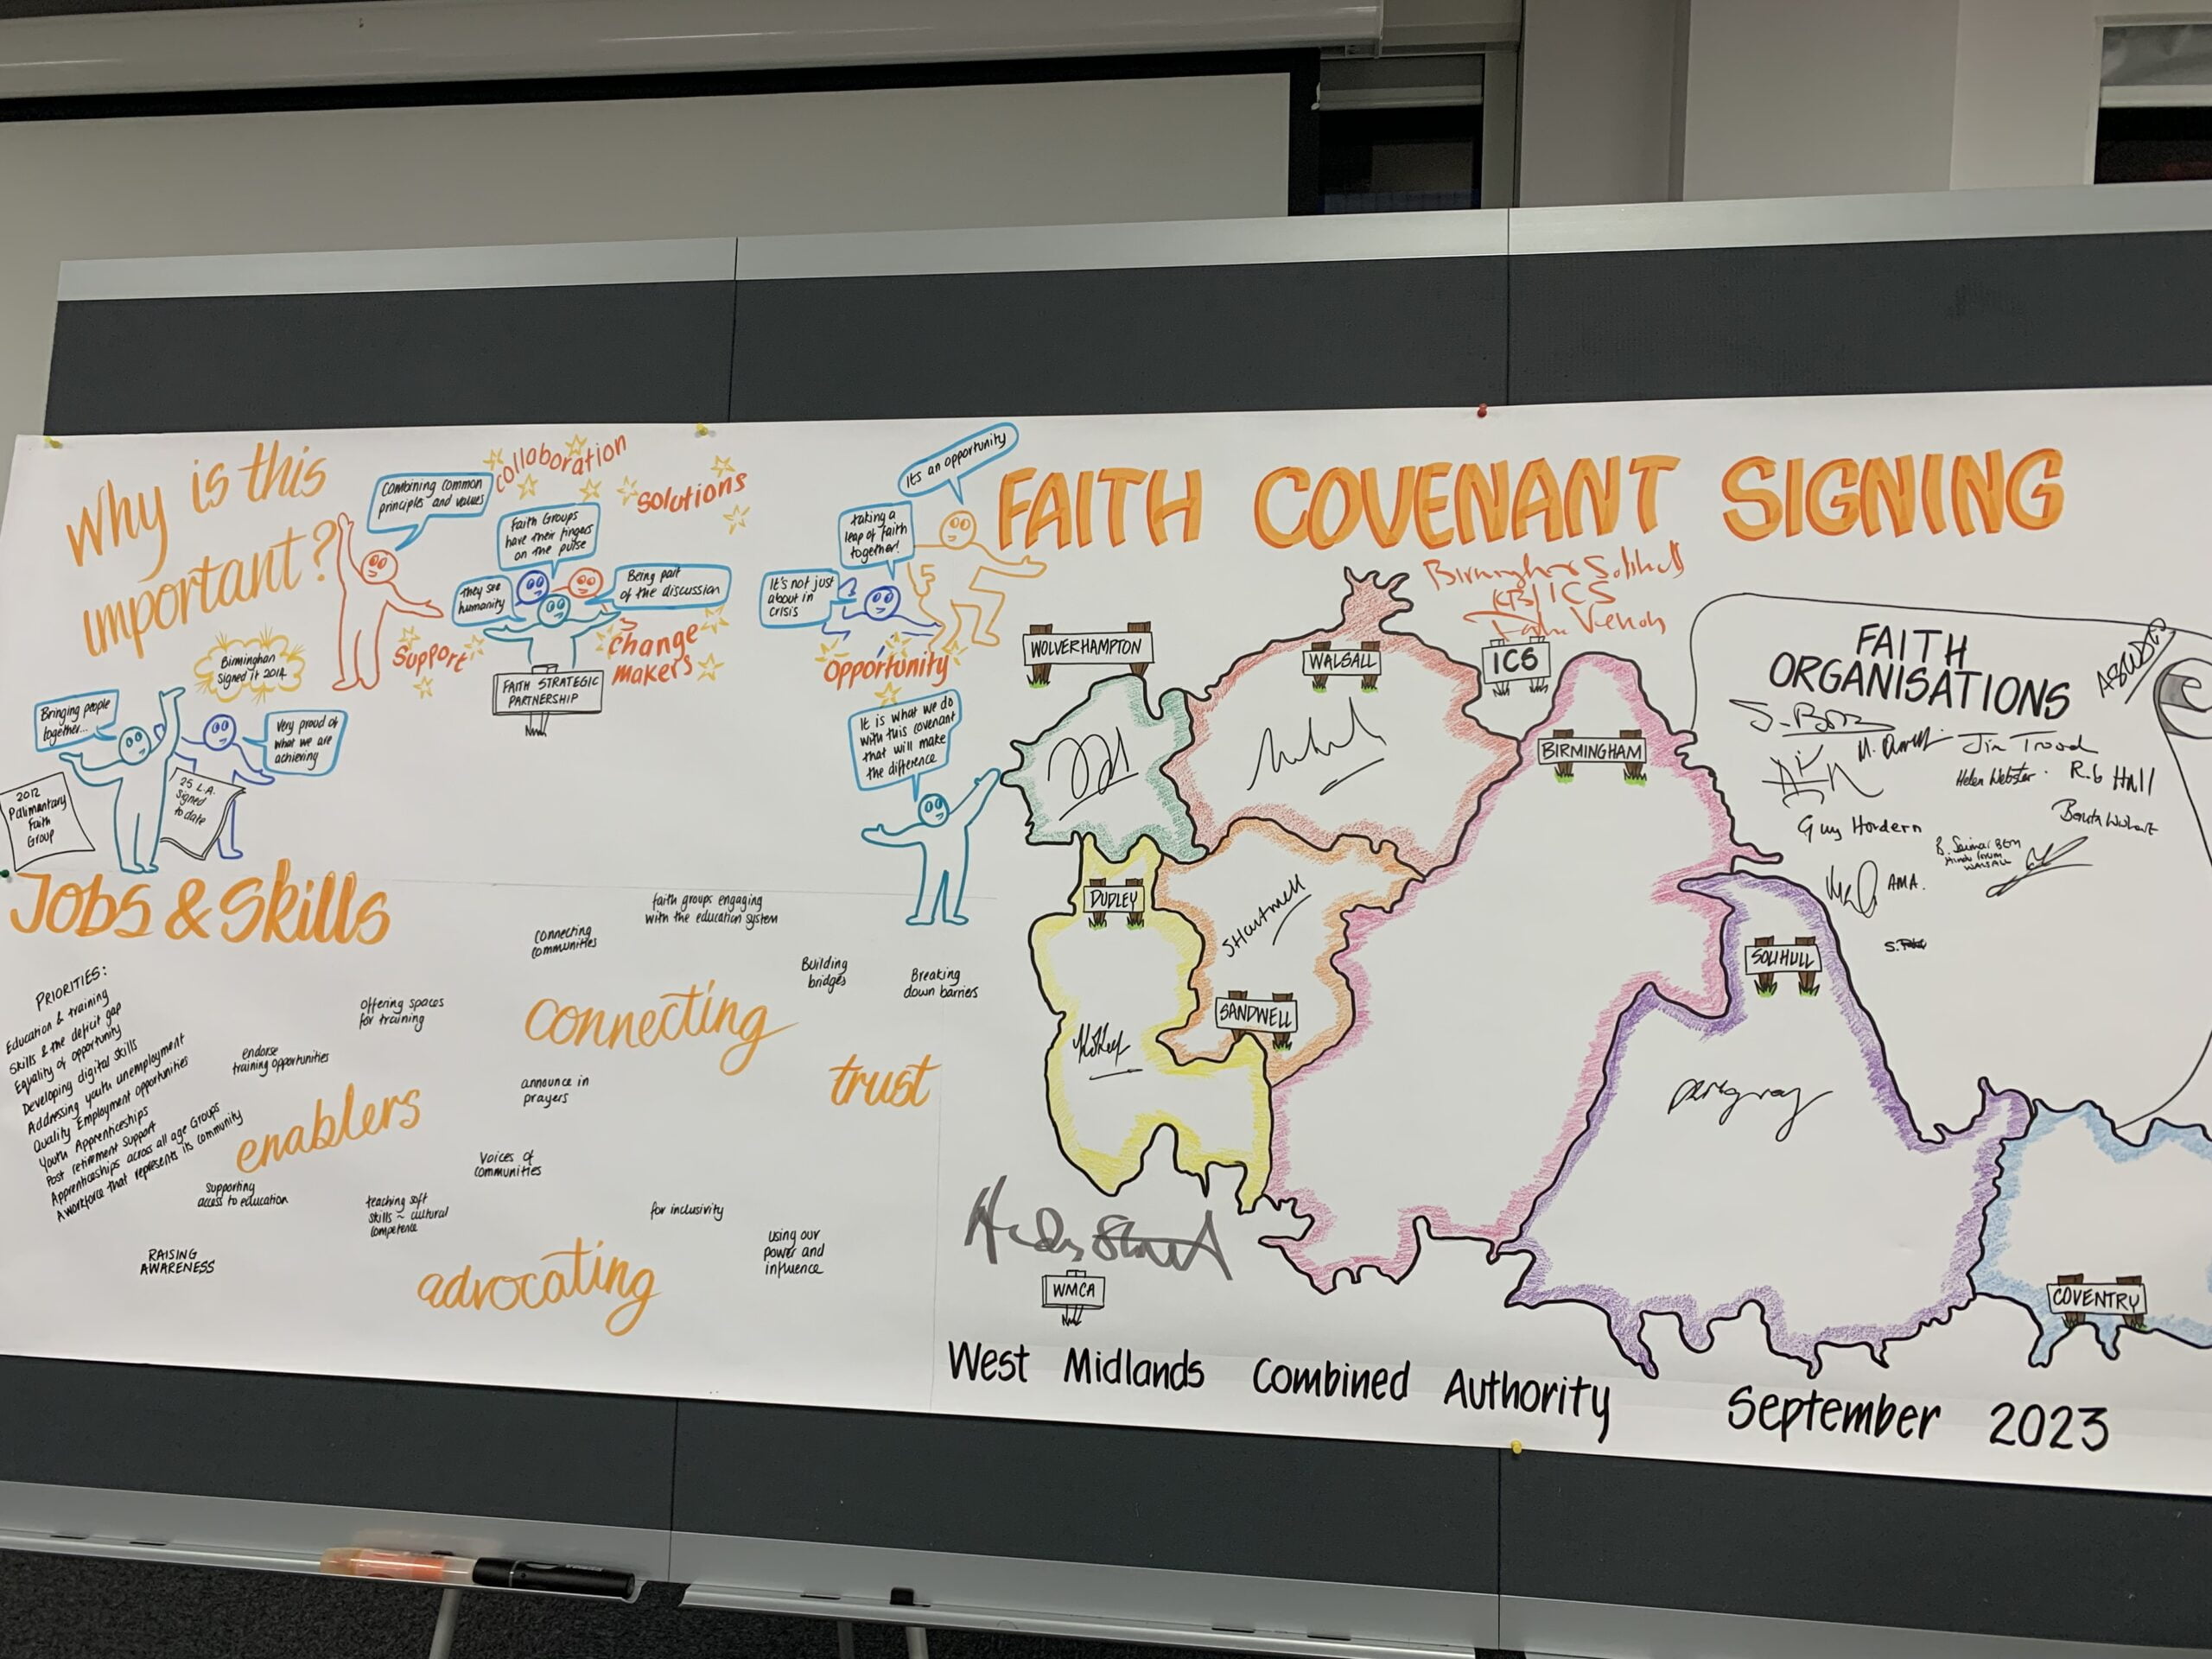 Why is this
important?
Combining common
principles and values
collaboration
solutions
Faith Groups
have their fingers
on the pulse
They see
humanity
Being part
of the discussion
Support
change
makers
FAITH STRATEGIC
PARTNERSHIP
Birmingham
Signed it 2014
Bringing people
together...
Very proud of
what we are
achieving
2012
Palimentary
Faith
Group
25 L.A.
Signed
to date
It's an opportunity
taking a
leap of faith
together!
It's not just
about in
crisis
Opportunity
It is what we do
with this covenant
that will make
the difference
Jobs & Skills
PRIORITIES:
Education & training
Skills & the deficit gap
Equality of opportunity
Developing digital skills
Addressing youth unemployment
Quality Employment opportunities
Youth Apprenticeships
Post retirement support
Apprenticeships across all age Groups
A workforce that represents its community
faith groups engaging
with the education system
connecting
communities
Building
bridges
Breaking
down barriers
Offering spaces
for training
connecting
endorse
training opportunities
announce in
prayers
trust
enablers
Voices of
communities
Supporting
access to education
teaching soft
skills ~ cultural
competence
for inclusivity
using our
power and
influence
RAISING
AWARENESS
advocating
FAITH COVENANT SIGNING
Birmingham Solihull
ICS
WOLVERHAMPTON
WALSALL
ICS
BIRMINGHAM
DUDLEY
SANDWELL
SOLIHULL
COVENTRY
WMCA
FAITH
ORGANISATIONS
Jim Trood
Helen Webster
Rob Hall
Guy Hordern
AMA.
Hindu Forum
WALSALL
West Midlands Combined Authority September 2023